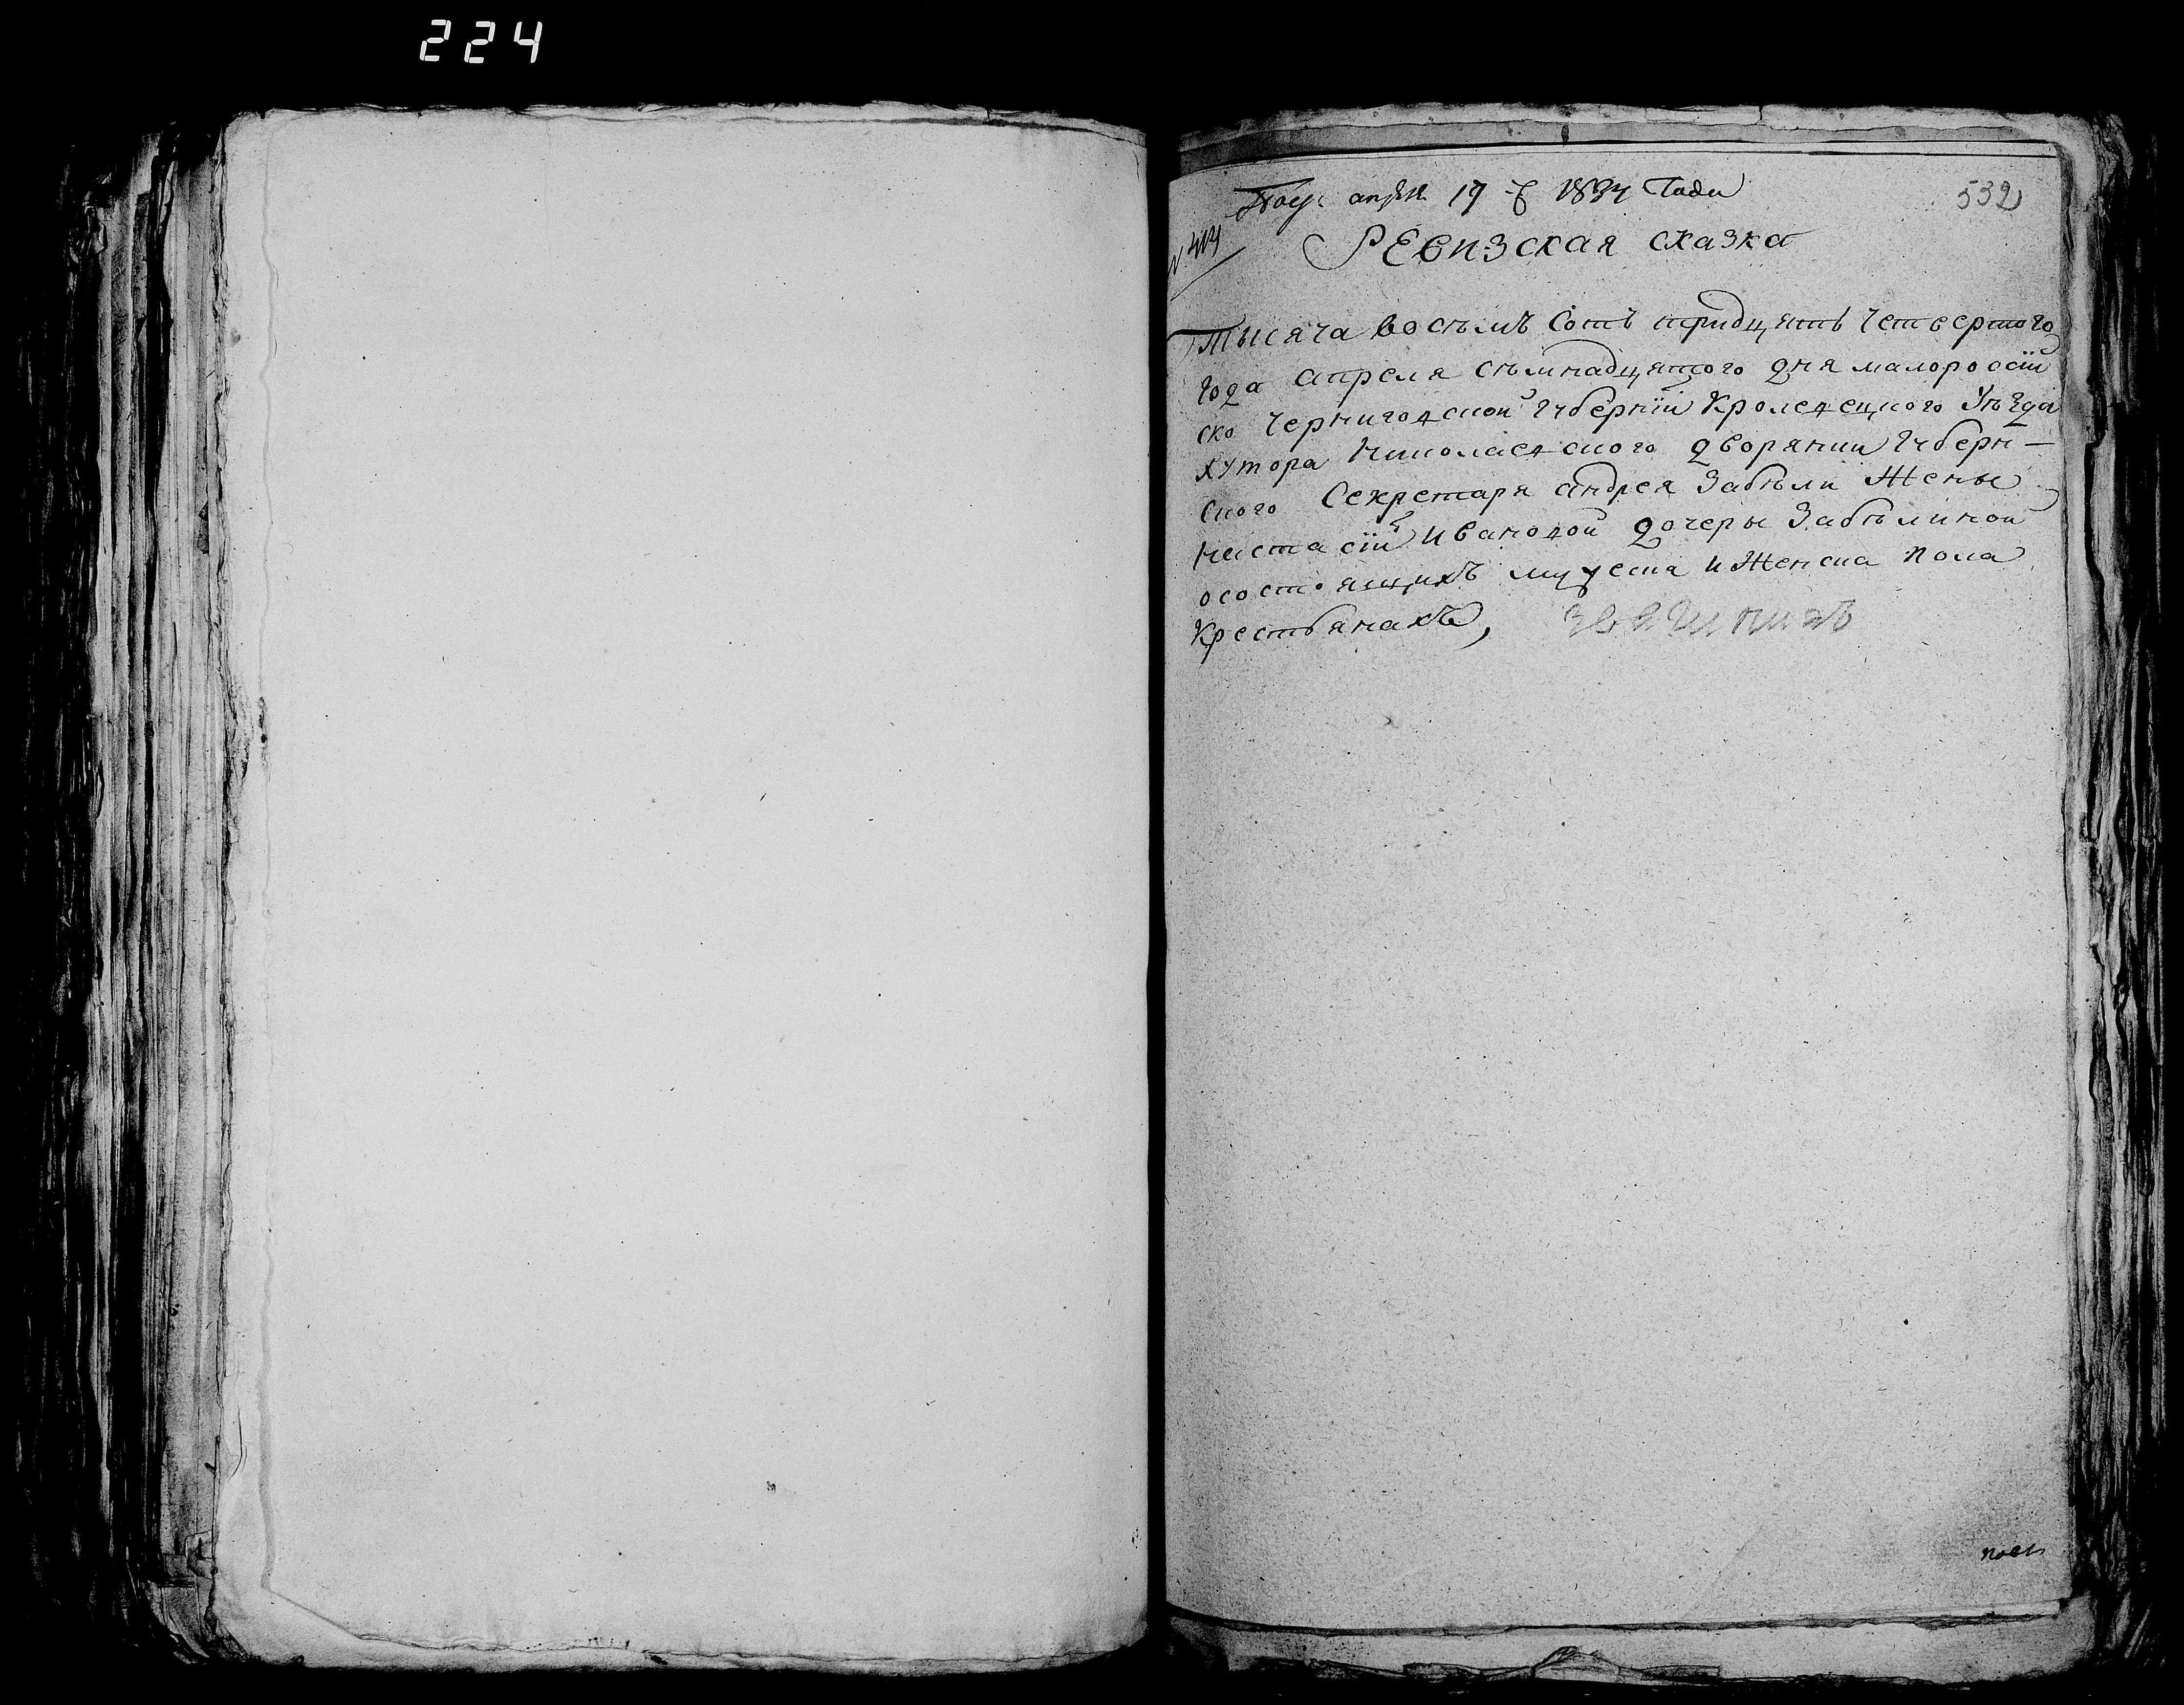 224
апреля 19 1834 Года
532
№ 414
РЕвизская сказка
Тысяча восѣмъ Сотъ тридцять четвертого
года апреля сѣмнадцятого дня малоросїй
ско Черниговской губернїй Кролевецкого Уѣзда
хутора Николаевского дворянки губерн-
ского Секретаря андрея Забѣли Жены
Настасїй Ивановой дочеры Забѣлиной
осостоящихъ мужеска и Женска пола
Крестьянахъ,